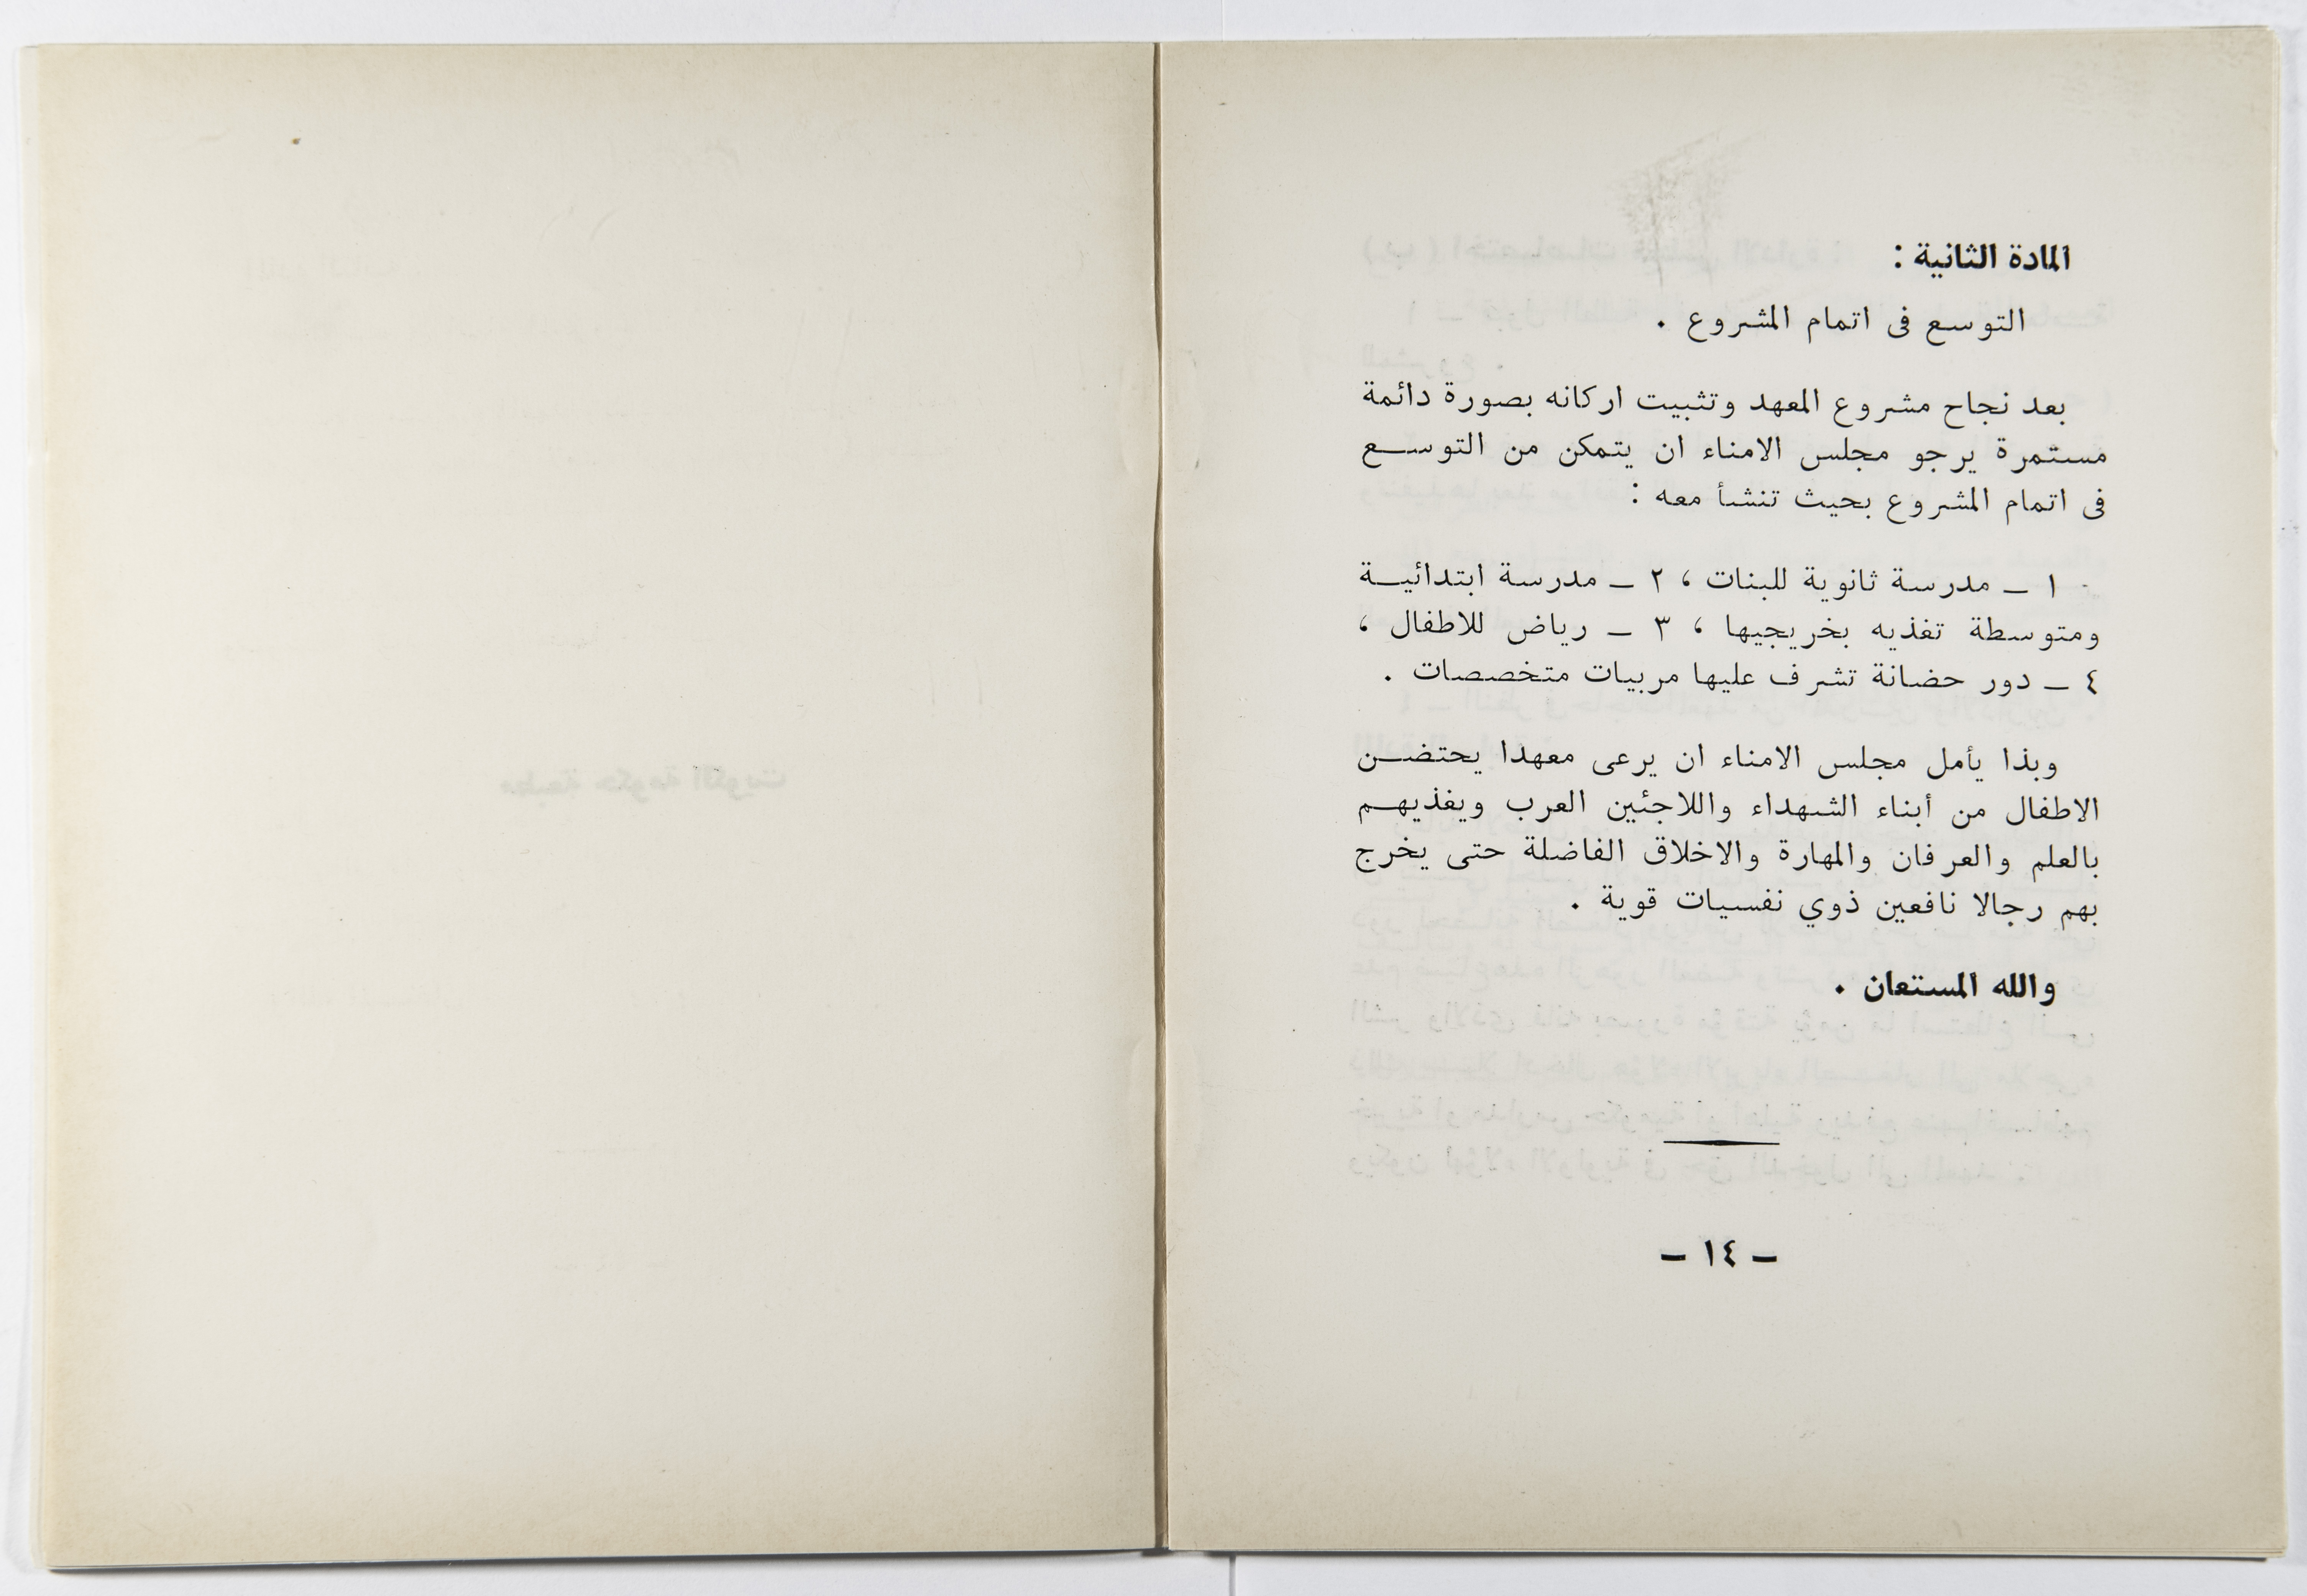 المادة الثانية :
التوسع فى اتمام المشروع .
بعد نجاح مشروع المعهد وتثبيت اركانه بصورة دائمة
مستمرة يرجو مجلس الامناء ان يتمكن من التوســع
فى اتمام المشروع بحيث تنشأ معه :
١ ــ مدرسة ثانوية للبنات ، ٢ ــ مدرسة ابتدائيــة
ومتوسطة تغذيه بخريجيها ، ٣ ــ رياض للاطفال ،
٤ ــ دور حضانة تشرف عليها مربيات متخصصات .
وبذا يأمل مجلس الامناء ان يرعى معهدا يحتضــن
الاطفال من أبناء الشهداء واللاجئين العرب ويغذيهــم
بالعلم والعرفان والمهارة والاخلاق الفاضلة حتى يخرج
بهم رجالا نافعين ذوي نفسيات قوية .
والله المستعان .
ــ ١٤ ــ
مطبعة حكومة الكويت